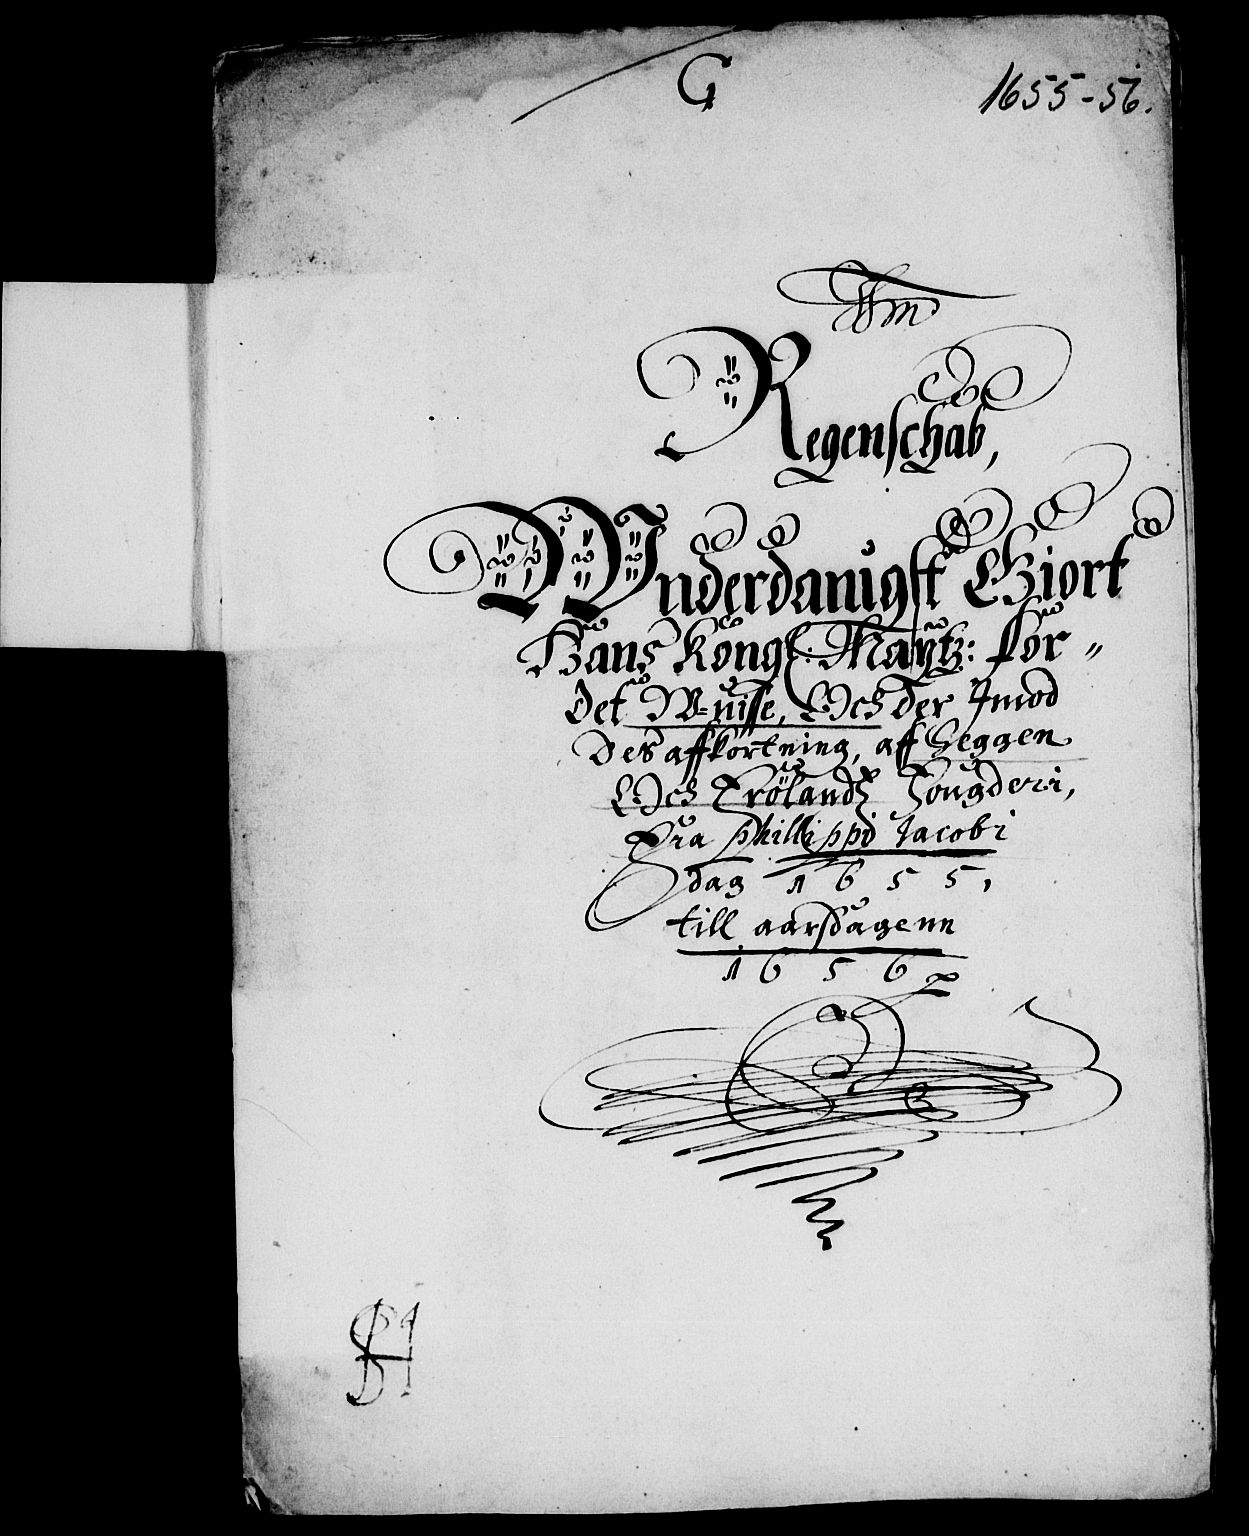 G
1655-56.
Regenschab,
Wnderdanigst Giort
Hans Kongl: Maytz: for
det W-uisse, Och der Imod
des affkortning, aff Heggen
Och Frölandz Fougderi,
Fra Phillippi Jacobi
dag 1655,
till aarsdagenn
1656